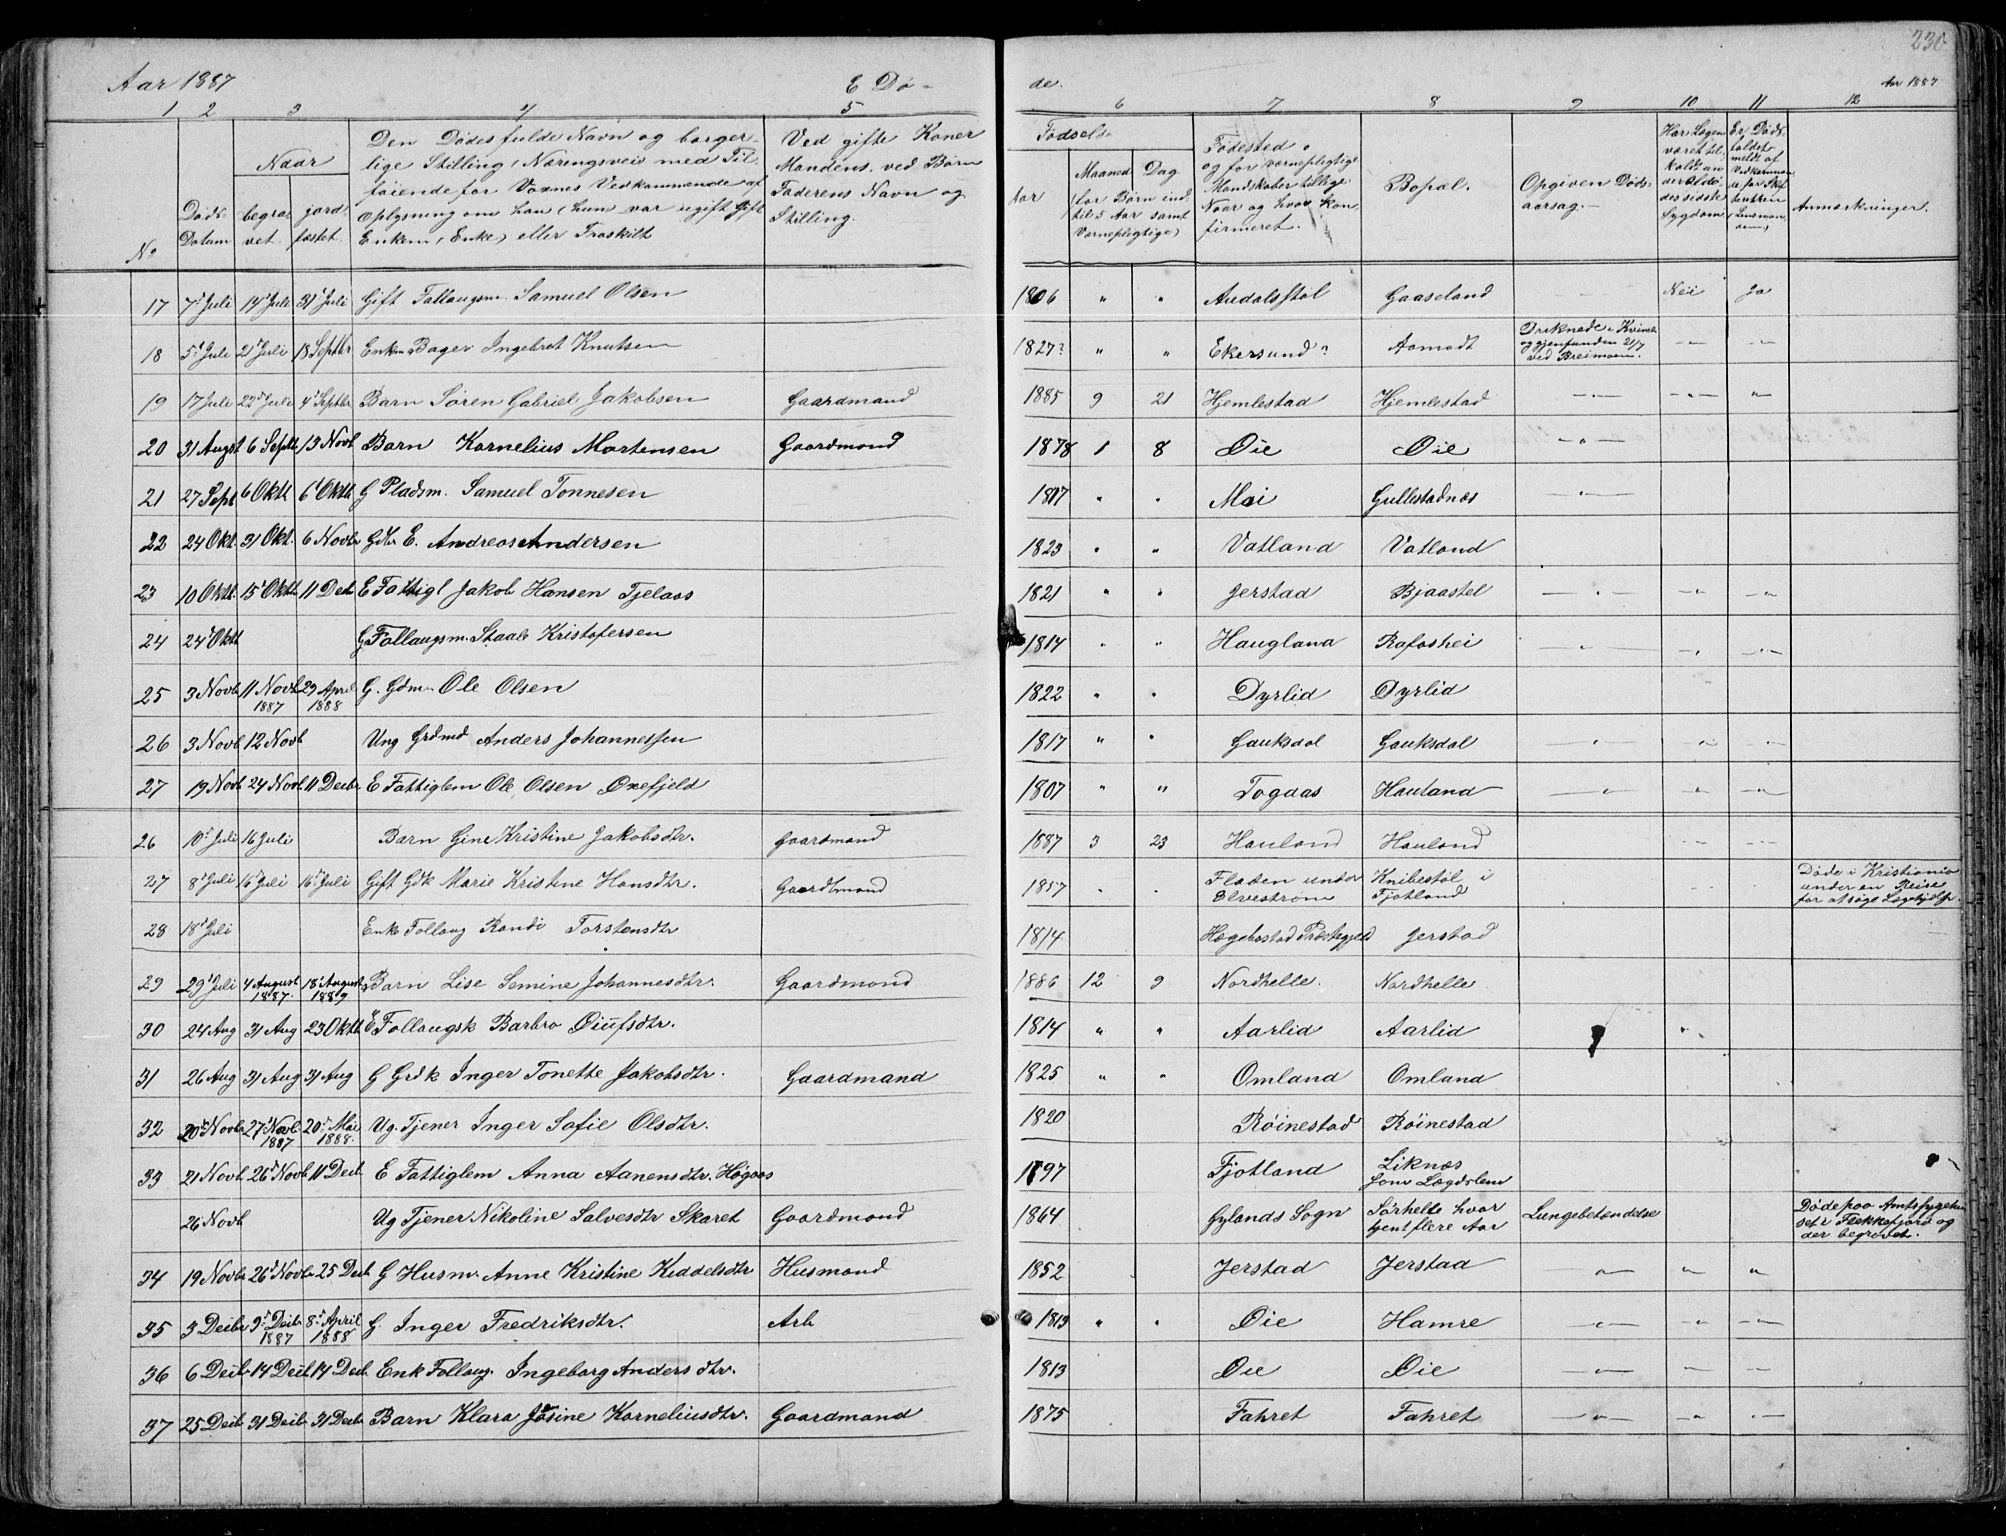 230
Aar 1887 E Dø- de. Aar 1887
1 2 3 4 5 6 7 8 9 10 11 12
No
Døds-
Datum
Naar
begra-
vet.
jord-
fæstet.
Den Dødes fulde Navn og borger-
lige Stilling (Næringsvei med Til-
føiende for Voxnes Vedkommende af
Oplysning om han (hun var ugift Gift
Enkem, Enke) eller Fraskilt
Ved gifte Koner
Mandens, ved Børn
Faderens Navn og
Stilling.
Fødsels-
Aar
Maaned Dag
(for Børn ind-
til 5 Aar samt
Værnepligtige)
Fødested,
og for værnepligtige
Mandskaber tillige
Naar og hvor kon-
firmeret.
Bopæl.
Opgiven Døds-
aarsag.
Har Lægen
været til-
kaldt un-
der Afdø-
des sidste
Sygdom
Er Døds-
faldet
meldt af
Vedkommen-
de for Skif-
teretten
(Lensman-
den)
Anmærkninger.
17 7d Juli 14d Juli 31d Juli Gift Follaugsm. Samuel Olsen 1806 " " Audalsstøl Gaaseland Nei Ja
18 5d Juli 21d Juli 18 Septbr Enkem Bager Ingebret Knutsen 1827? " " Ekersund? Aamodt Druknede i Kvina
og gjenfunden 21/7
ved Breimoen. - " - - " -
19 17 Juli 22d Juli 4d Septbr Barn Søren Gabriel Jakobsen Gaardmand 1885 9 21 Hjemlestad Hjemlestad - " - - " - "
20 31 Augst 6 Septb 13 Novb Barn Kornelius Mortensen Gaardmand 1878 1 8 Øie Øie - " -
21 27 Sept 6 Oktb 6d Oktb G Pladsm. Samuel Tønnesen 1807 " " Moi Gullestadnæs - " -
22 24 Okt. 31 Okt. 6 Novbr Gdbr E. Andreas Andersen 1823 " " Vatland Vatland
23 10 Oktb. 15d Oktb 11 Decb E Fattigl Jakob Hansen Tjelaas 1821 " " Jerstad Bjaastøl - " - - " - - " -
24 24d Oktb G Follaugsm. Staale Kristofersen 1814 " " Haugland Rafoshei - " - - " - - " -
25 3 Novb 11 Novb 29 April G. Gdm. Ole Olsen 1822 " " Dyrlid Dyrlid
1887 1888
26 3 Novb 12 Novb Ung Grdmd Anders Johannessen 1817 " " Gauksdal Gauksdal - " - - " - - " -
27 19 Novb 24 Novb 11 Decbr E Fattiglem Ole Olsen Oxefjeld 1807 " " Togaas Hauland - " - - " - - " -
26 10d Juli 16 Juli Barn Gine Kristine Jakobsdtr. Gaardmand 1887 3 23 Hauland Hauland - " - - " -
27 8d Juli 16d Juli 16d Juli Gift Gdk Marie Kristine Hansdtr. Gaardmand 1857 " " Fladen under
Elvestrøm Knibestøl i
Fjotland Døde i Kristiania
under en Reise
for at søge Lægehjelp.
28 18d Juli Enke Follaug Randi Torstensdtr 1814 Hægebostad Præstegjeld Jerstad
29 29d Juli 4 August 18d August Barn Lise Semine Johannesdtr. Gaardmand 1886 12 9 Nordhelle. Nordhelle
1887. 1889
30 24 Aug 31 Aug 23 Oktb E Follaugsk Barbro Øiufsdtr. 1814 " " Aarlid Aarlid "
31 26 Aug 31 Aug 31 Aug G Grdk Inger Tonette Jakobsdtr. Gaardmand 1825 " " Omland Omland
32 20d Novb 27d Novb. 20d Mai Ug. Tjener Inger Sofie Olsdtr. 1820 Røinestad Røinestad
1887 1888.
33 21 Novb 26d Novb 11 Decb E Fattiglem Anna Aanensdtr. Høgaas 1797 Fjotland Liknæs
som Lægdslem
26 Novb Ug Tjener Nikoline Salvesdtr Skaret Gaardmand 1864 Gylands Sogn Sørhelle hvor
tjent flere Aar Lungebetændelse Døde paa Amtssygehu-
set i Flekkefjord og
der begravet.
34 19 Novb 26d Novb 25 Decb G Husm. Anne Kristine Kiddelsdtr Husmand 1852 Jerstad Jerstad - " - " "
35 3 Decbr 9d Decbr 8d April G. Inger Fredriksdtr. Arb 1813 " " Øie Hamre - " - - " - - " -
1887 1888
36 6 Decb 14 Decb 14 Decb Enk Follaug. Ingeborg Andersdtr. 1813 Øie Øie - " - - " - - " -
37 25 Decb 31 Decb 31 Decb Barn Klara Josine Korneliusdtr. Gaardmand 1875 Fahret Fahret - " - " - " -